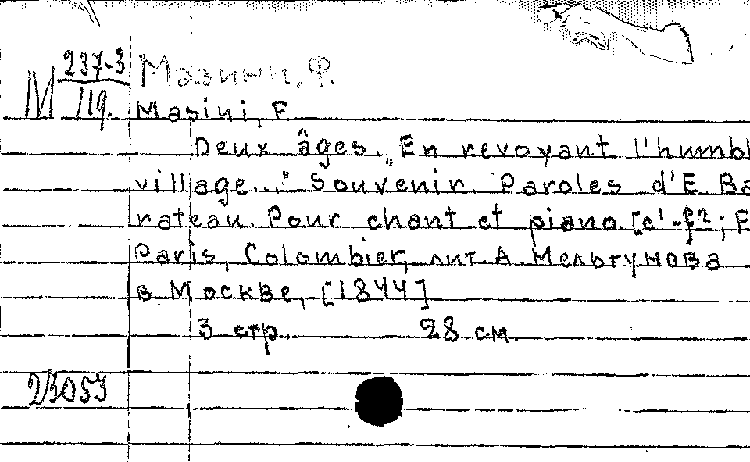 М 237-3/119.
Мазини, Ф.
Masini, F.
Deux âges. „En revoyant l'humbl
village..." Souvenir. Paroles d'E. Ba
rateau. Pour chant et piano. [c¹-f²; F
Paris, Colombier, лит. А. Мельгунова
в Москве, [1844]
3 стр. 28 см.